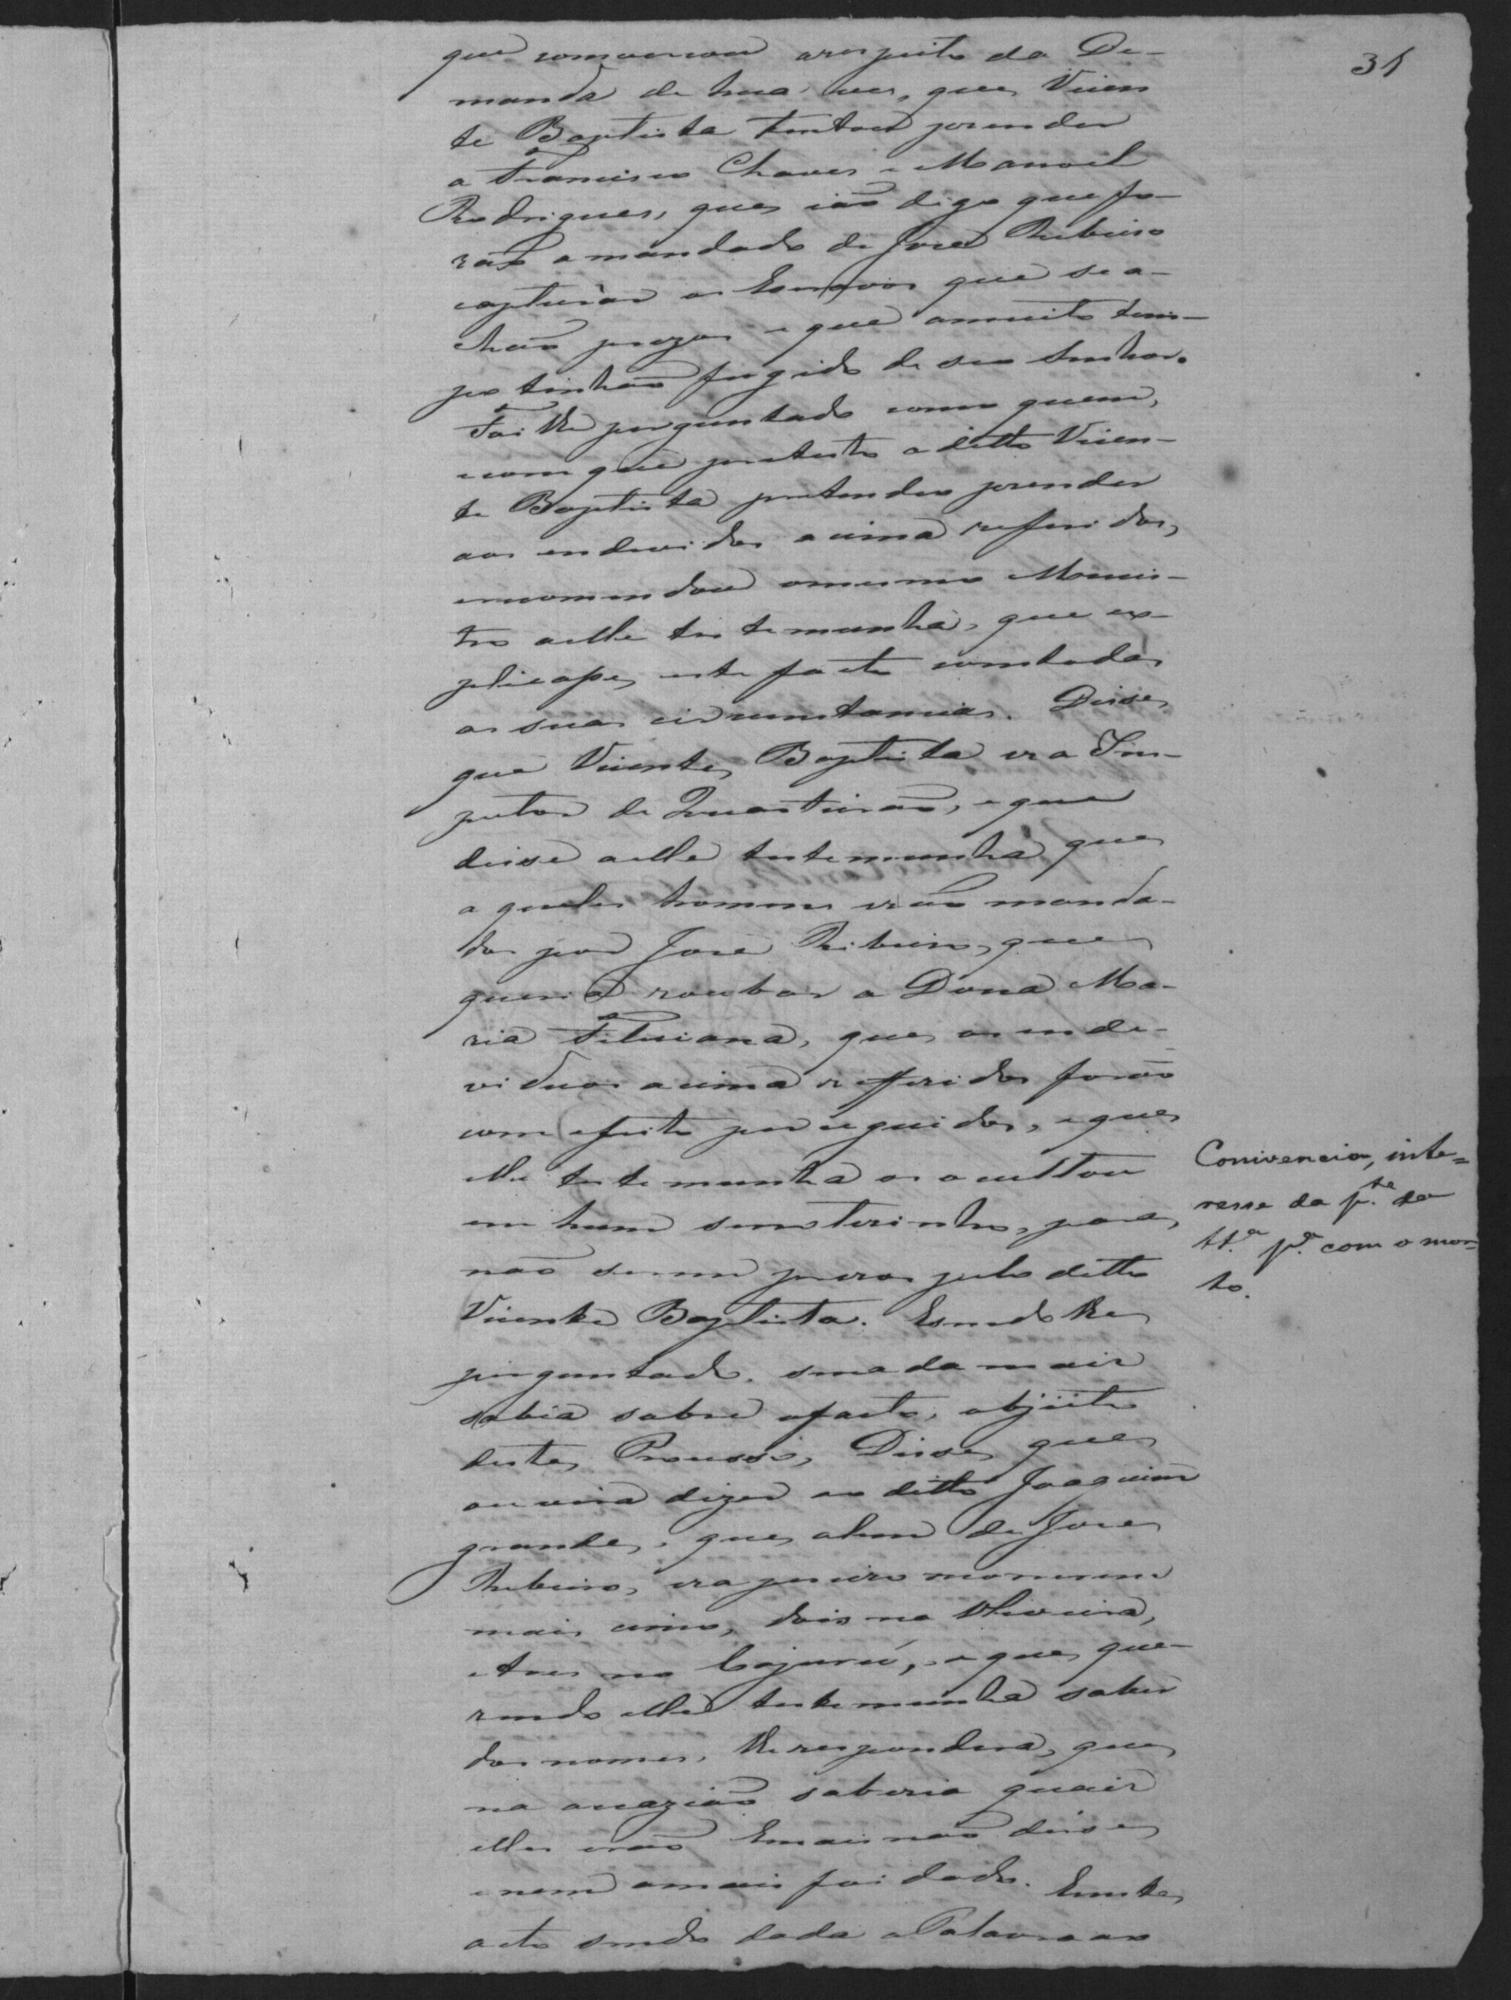 31
que comversou arespeito da De-
manda de hua vez, que Vicen
te Baptista tentou prender
a Francisco Chaves e Manoel
Rodrigues, que ião digo que fo-
rão amandado de José Ribeiro
capturar os Escravos que se a-
chão prezos e que amuito tem-
po tinhão fugido de seo Senhor.
Foi lhe perguntado como quem,
com que pretesto o ditto Vicen-
te Baptista pretendeo prender
aos endevidos acima referidos,
emcomendou omesmo Menis-
tro aelle testemunha, que ex-
plicaçe este facto comtodas
as suas circunstamcias. Disse
que Vicente Baptista era Ins-
petor de Quarteirão, e que
disse aelle testemunha que
aqueles homens erão manda-
dos por José Ribeiro, que
queria roubar a Dona Ma-
ria Feliciana, que os ende-
viduos acima refferidos forão
com efeito perseguidos, e que
elle testemunha os ocultou
em hum semeterinho, para
não serem prezos pelo ditto
Vicente Baptista. Esendo lhe
perguntado. senada mais
sabia sobre ofacto, objécto
deste Procésso, Disse que
ouvira dizer ao ditto Joaquim
grande, que alem de José
Ribeiro, era precizo morrerem
mais cinco, dois na Oliveira,
etres no Cajurú, e que que-
rendo elle testemunha saber
dos nomes, lhe respondera, que
na ocazião saberia quais
elles erão Emais não disse
enem omais foi dado. Eneste
acto sendo dada aPalavra ao
Conivencia, inte=
resse da p.te da
tt.a p.a com o mor-
to.